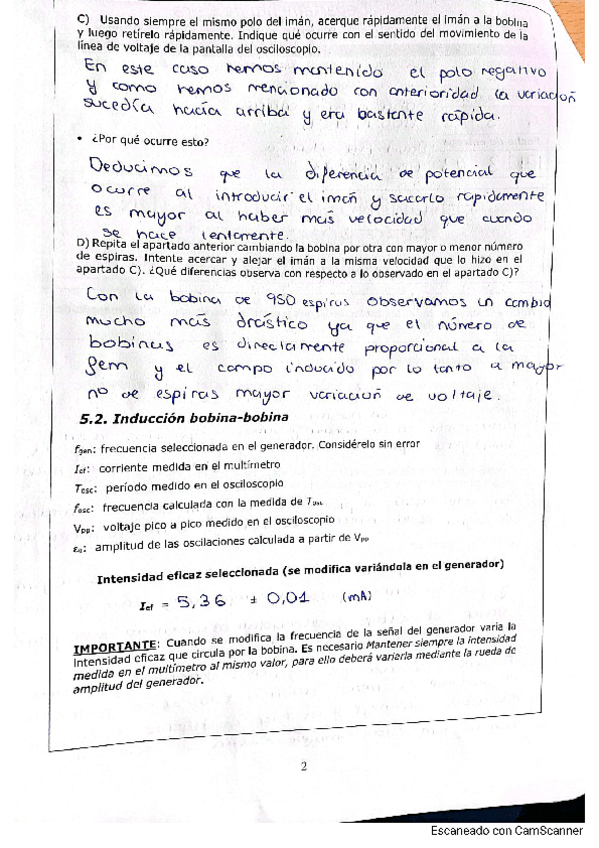 C) Usando siempre el mismo polo del imán, acerque rápidamente el imán a la bobina
y luego retírelo rápidamente. Indique qué ocurre con el sentido del movimiento de la
línea de voltaje de la pantalla del osciloscopio.
En este caso hemos mantenido el polo negativo
y como hemos mencionado con anterioridad la variación
sucedía hacía arriba y era bastante rápida.
• ¿Por qué ocurre esto?
Deducimos que la diferencia de potencial que
ocurre al introducir el imán y sacarlo rapidamente
es mayor al haber más velocidad que cuando
se hace lentamente.
D) Repita el apartado anterior cambiando la bobina por otra con mayor o menor número
de espiras. Intente acercar y alejar el imán a la misma velocidad que lo hizo en el
apartado C). ¿Qué diferencias observa con respecto a lo observado en el apartado C)?
Con la bobina de 950 espiras observamos un cambio
mucho más drástico ya que el número de
bobinas es directamente proporcional a la
fem y el campo inducido por lo tanto a mayor
nº de espiras mayor variación de voltaje.
5.2. Inducción bobina-bobina
fgen: frecuencia seleccionada en el generador. Considérelo sin error
Ief: corriente medida en el multímetro
Tosc: período medido en el osciloscopio
fosc: frecuencia calculada con la medida de Tosc
Vpp: voltaje pico a pico medido en el osciloscopio
ε0: amplitud de las oscilaciones calculada a partir de Vpp
Intensidad eficaz seleccionada (se modifica variándola en el generador)
Ief = 5,36 ± 0,01 (mA)
IMPORTANTE: Cuando se modifica la frecuencia de la señal del generador varía la
intensidad eficaz que circula por la bobina. Es necesario Mantener siempre la intensidad
medida en el multímetro al mismo valor, para ello deberá variarla mediante la rueda de
amplitud del generador.
2
Escaneado con CamScanner